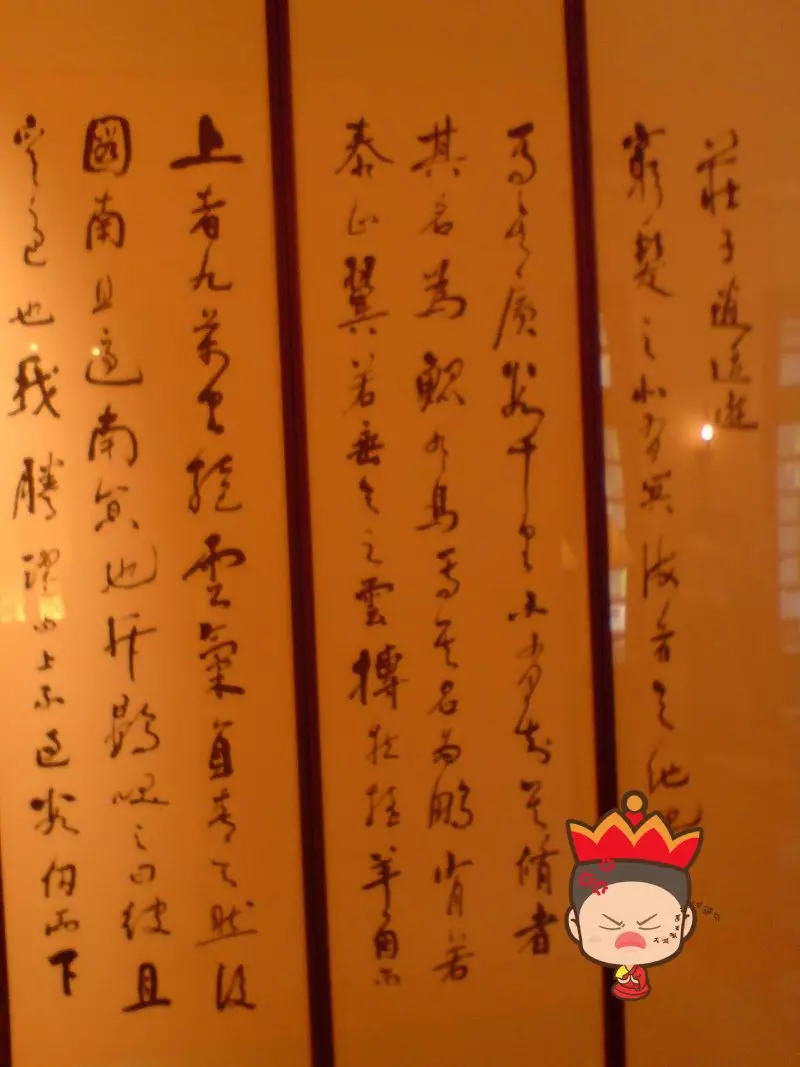 莊子逍遙遊
窮髮之北有冥海者天池
焉其廣數千里未有知其脩者
其名為鯤有鳥焉其名為鵬背若
泰山翼若垂天之雲摶扶搖羊角而
上者九萬里絕雲氣負青天然後
圖南且適南冥也斥鴳笑之曰彼且
奚適也我騰躍而上不過數仞而下